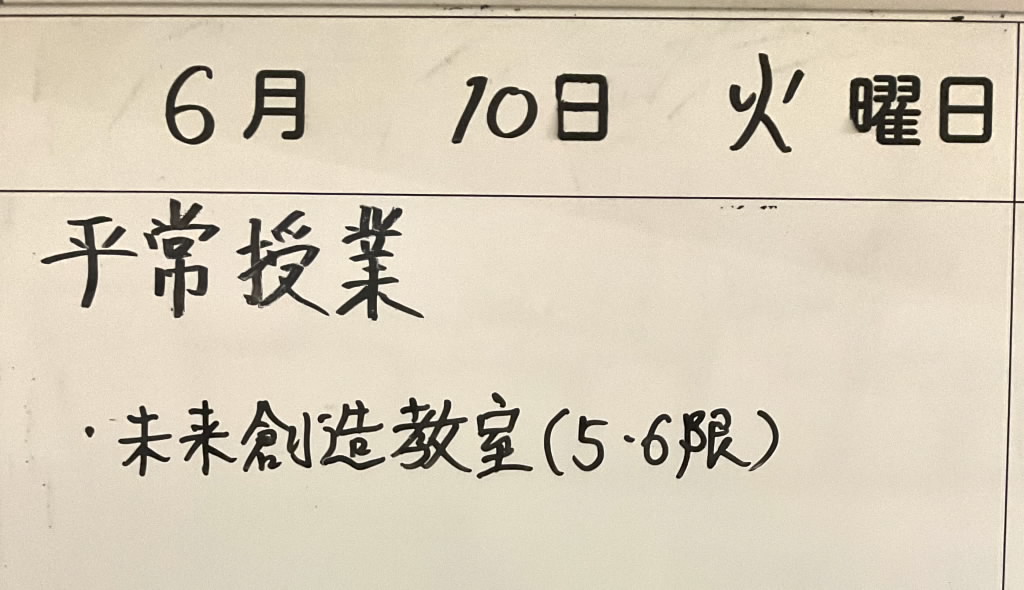 6月 10日 火曜日
平常授業
・未来創造教室(5・6限)